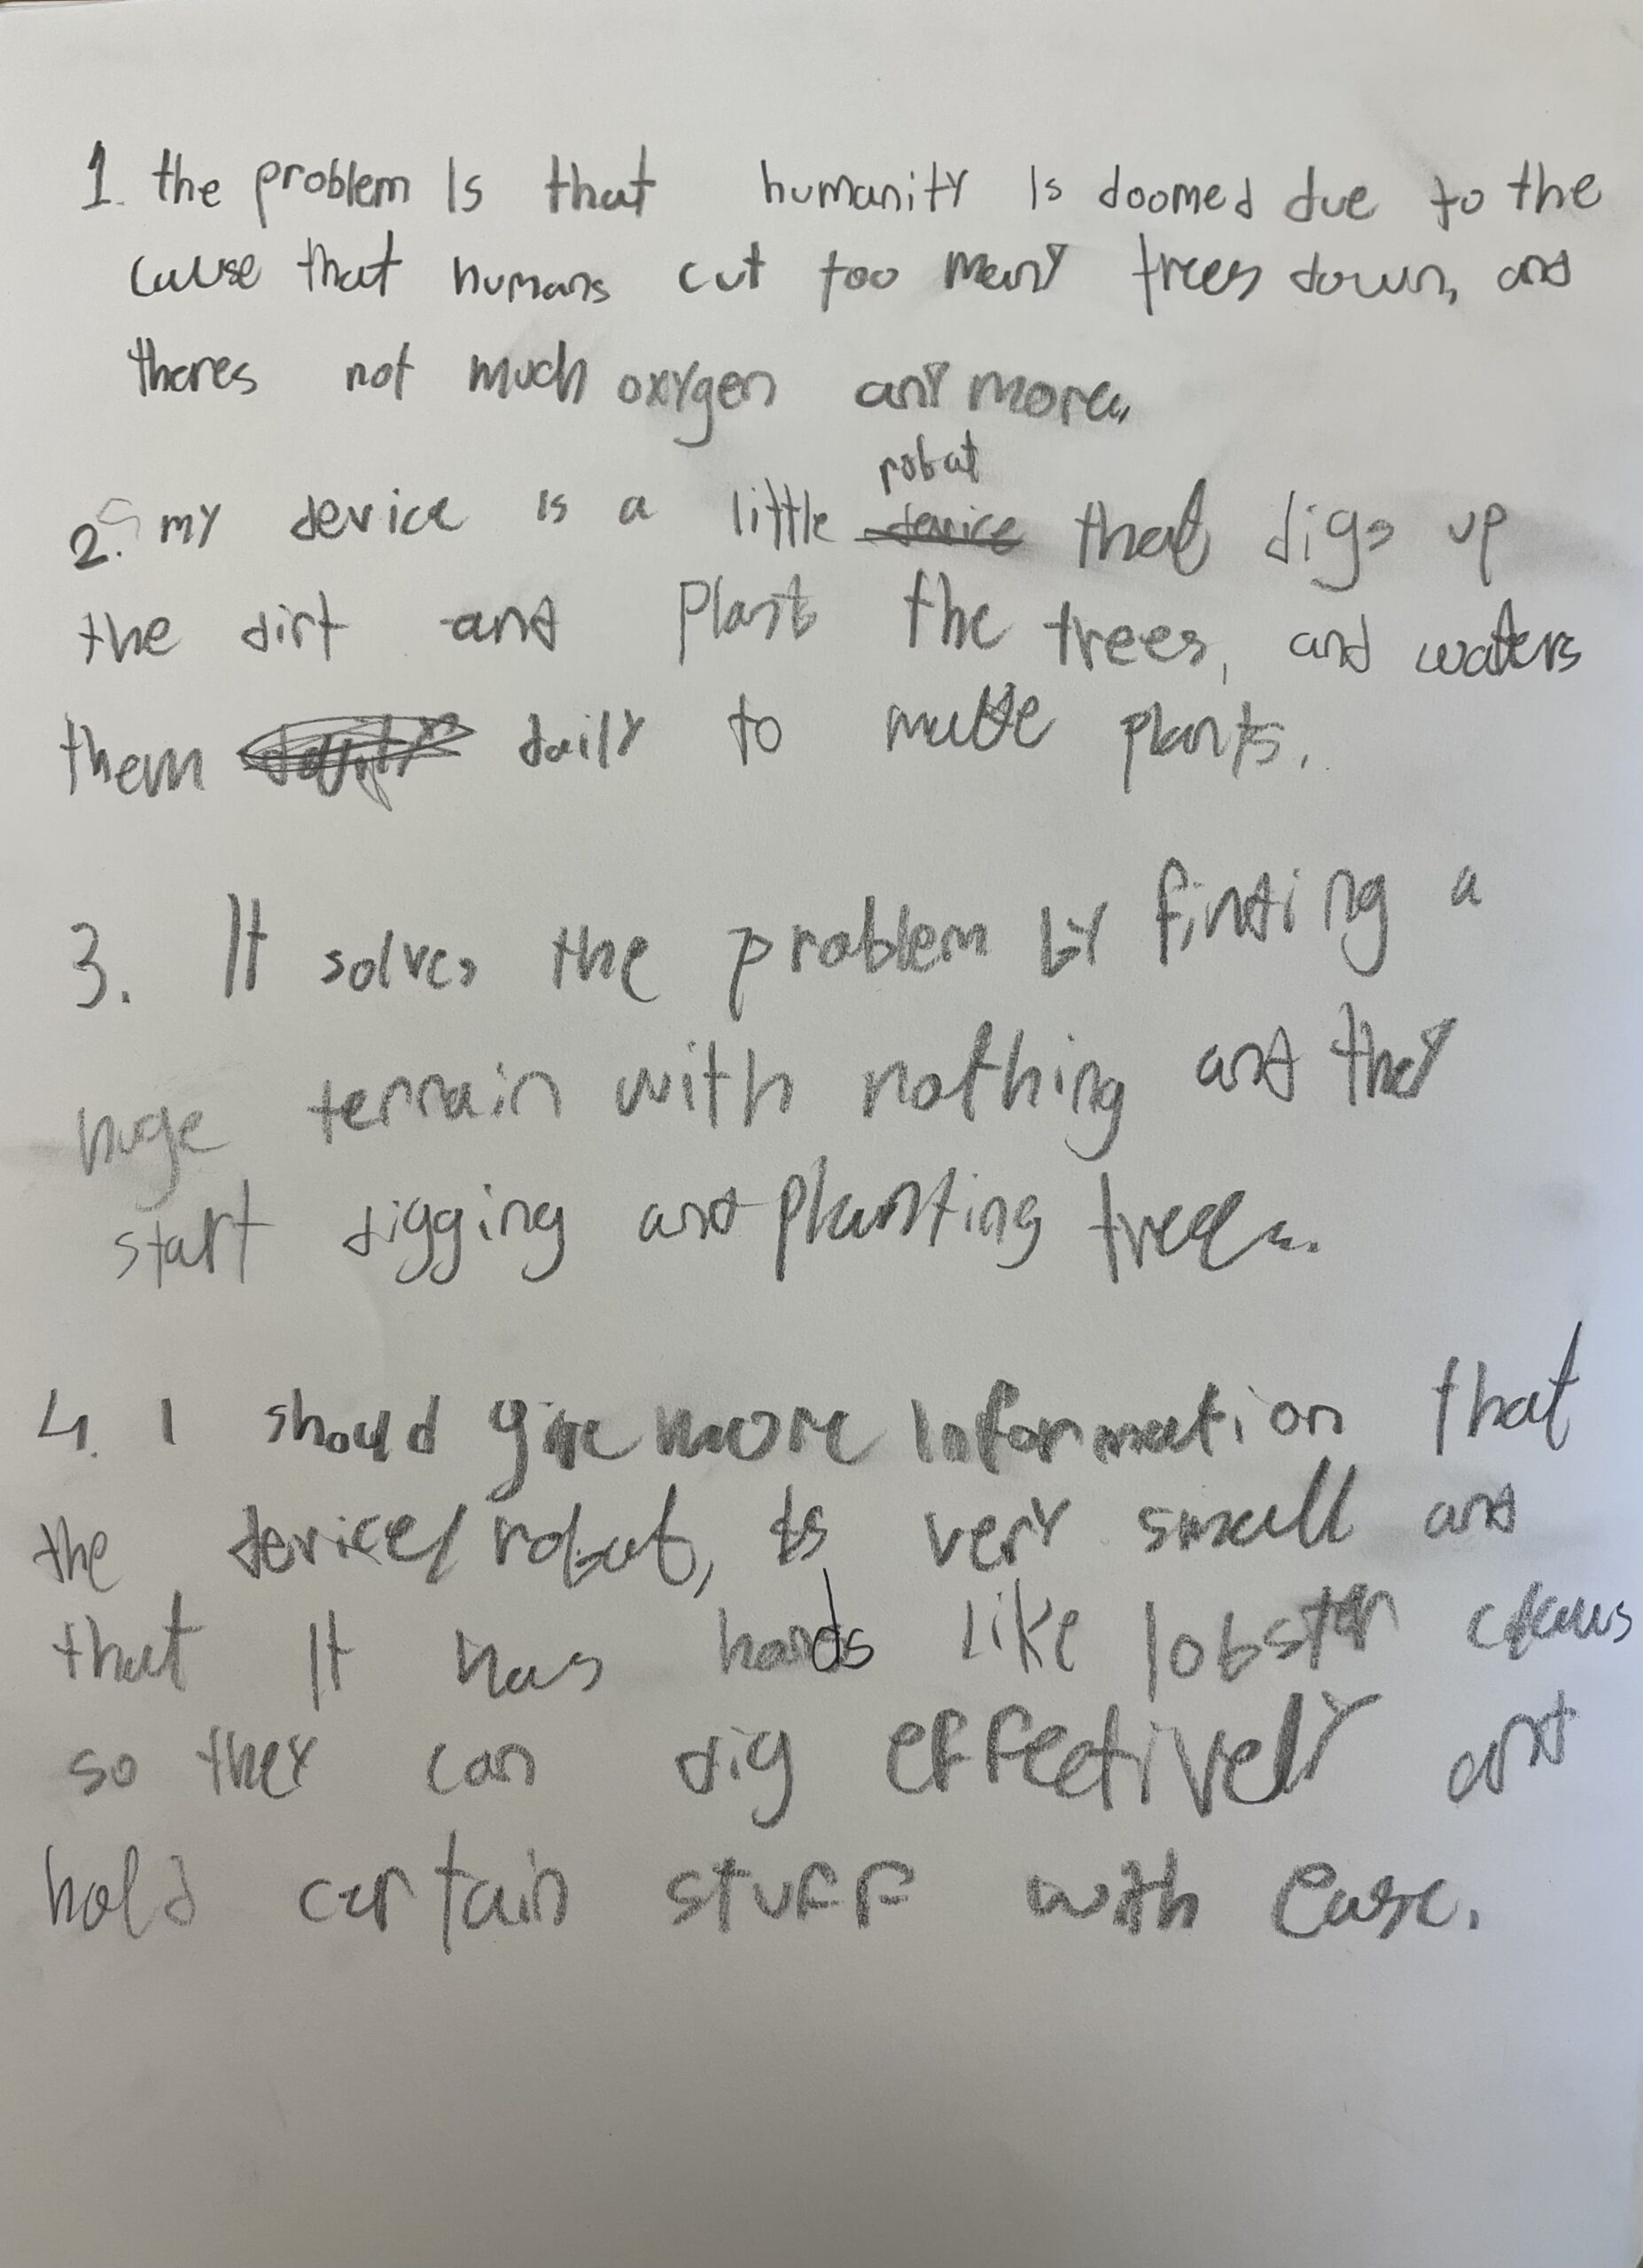 1. the problem Is that humanity Is doomed due to the
cause that humans cut too many trees down, and
theres not much oxygen any more.
robot
2. my device is a little device that digs up
the dirt and plant the trees, and waters
them daily to make plants.
3. It solves the problem by finding a
huge terrain with nothing and they
start digging and planting trees.
4. I should give more Information that
the device/robot, Is very small and
that It has hands like lobster claws
so they can dig effectively and
hold certain stuff with ease.